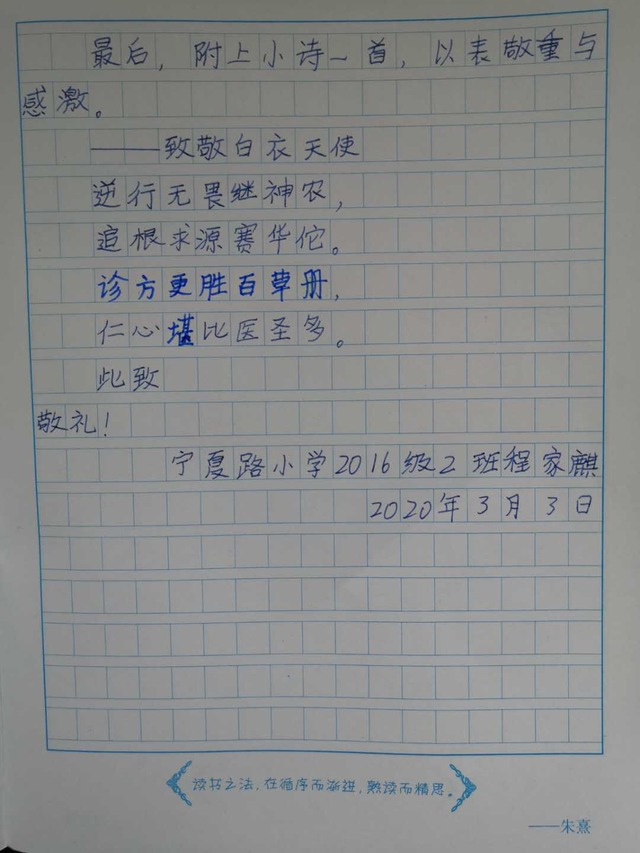 最后，附上小诗一首，以表敬重与
感激。
——致敬白衣天使
逆行无畏继神农，
追根求源赛华佗。
诊方更胜百草册，
仁心堪比医圣多。
此致
敬礼！
宁夏路小学2016级2班程家麒
2020年3月3日
读书之法，在循序而渐进，熟读而精思。
——朱熹